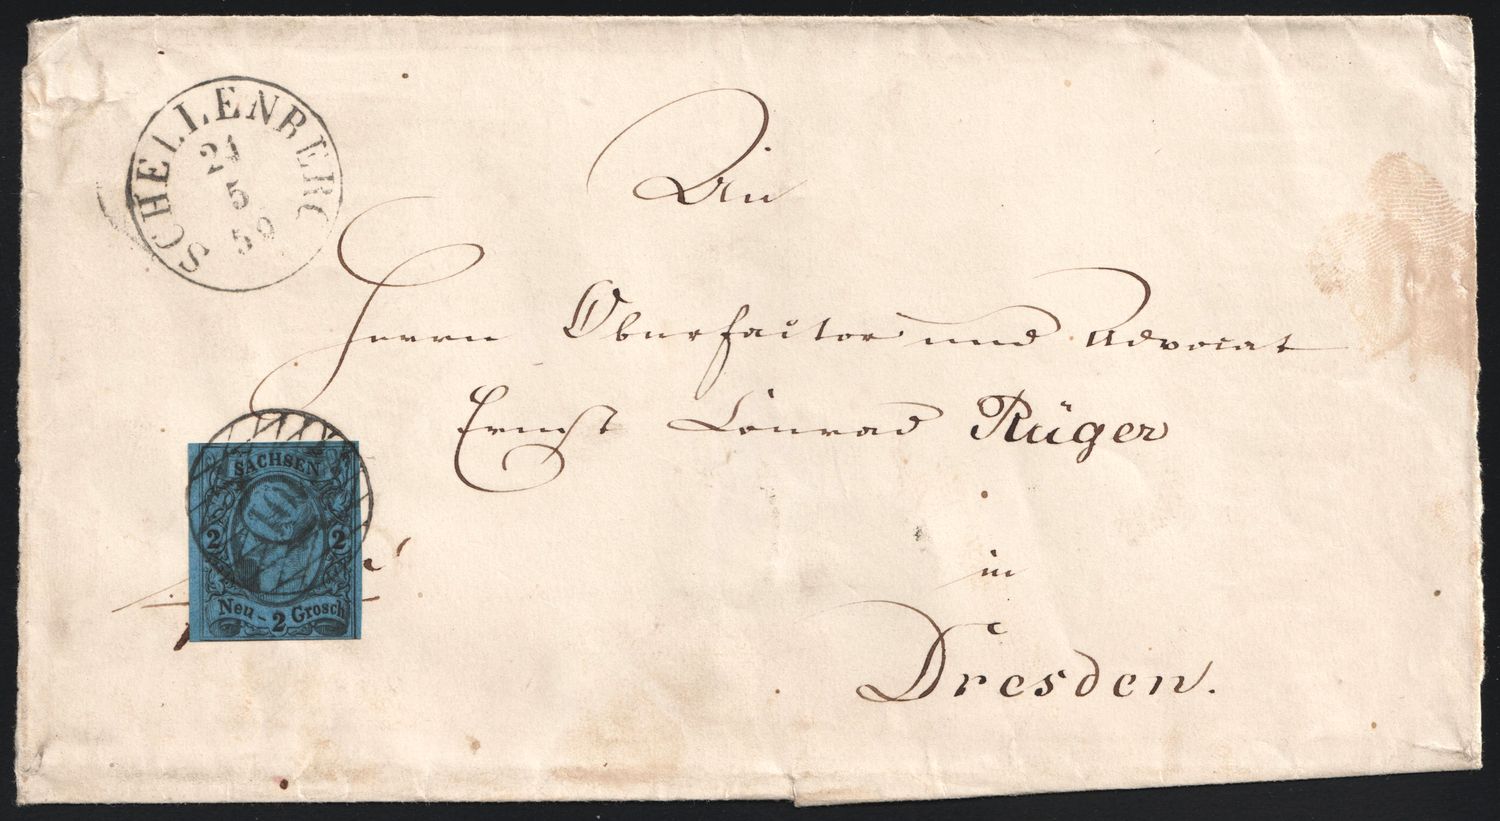 SCHELLENBERG
21
5
59
An
Herrn Oberfactor und Advocat
Ernst Conrad Rüger
in
Dresden.
SACHSEN
2 2
Neu - 2 Grosch